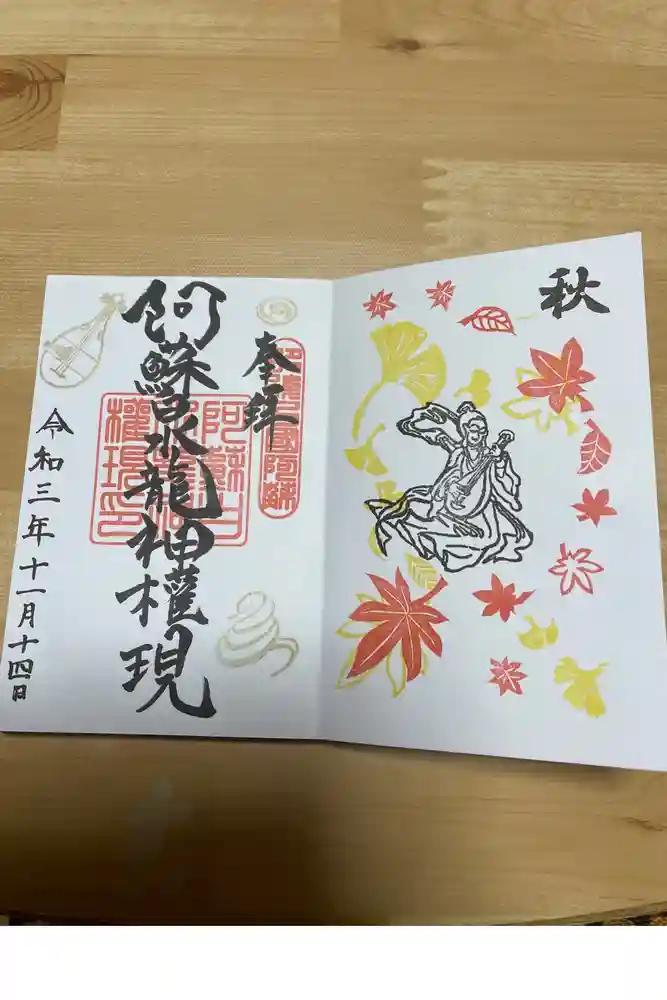 秋
奉拝
國阿蘇
阿蘇白水龍神權現
阿蘇白
權現印
令和三年十一月十四日